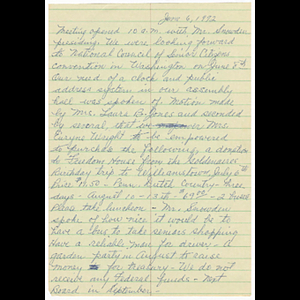 June 6, 1972
Meeting opened 10 a.m. with Mr. Snowden
presiding. We were looking forward
to National Council of Senior Citizens
convention in Washington on June 8th
Our need of a clock and public
address system in our assembly
hall was spoken of. Motion made
by Mrs. Laura B. Jones and seconded
by several, that Mrs.
Eunices Wright be empowered
to purchase the following, a donation
to Freedom House from the Goldenaires
Birthday trip to Williamstown July 6th
Price 10.50 - Penn. Dutch Country - three
days - August 10-13th - $69.95 - 2
luncheon - Mr. Snowden
spoke of how nice it would be to
have a bus, to take seniors shopping
Have a reliable man for driver - A
garden party in August to raise
money for treasury - We do not
receive any Federal funds - Meet
Board in September -